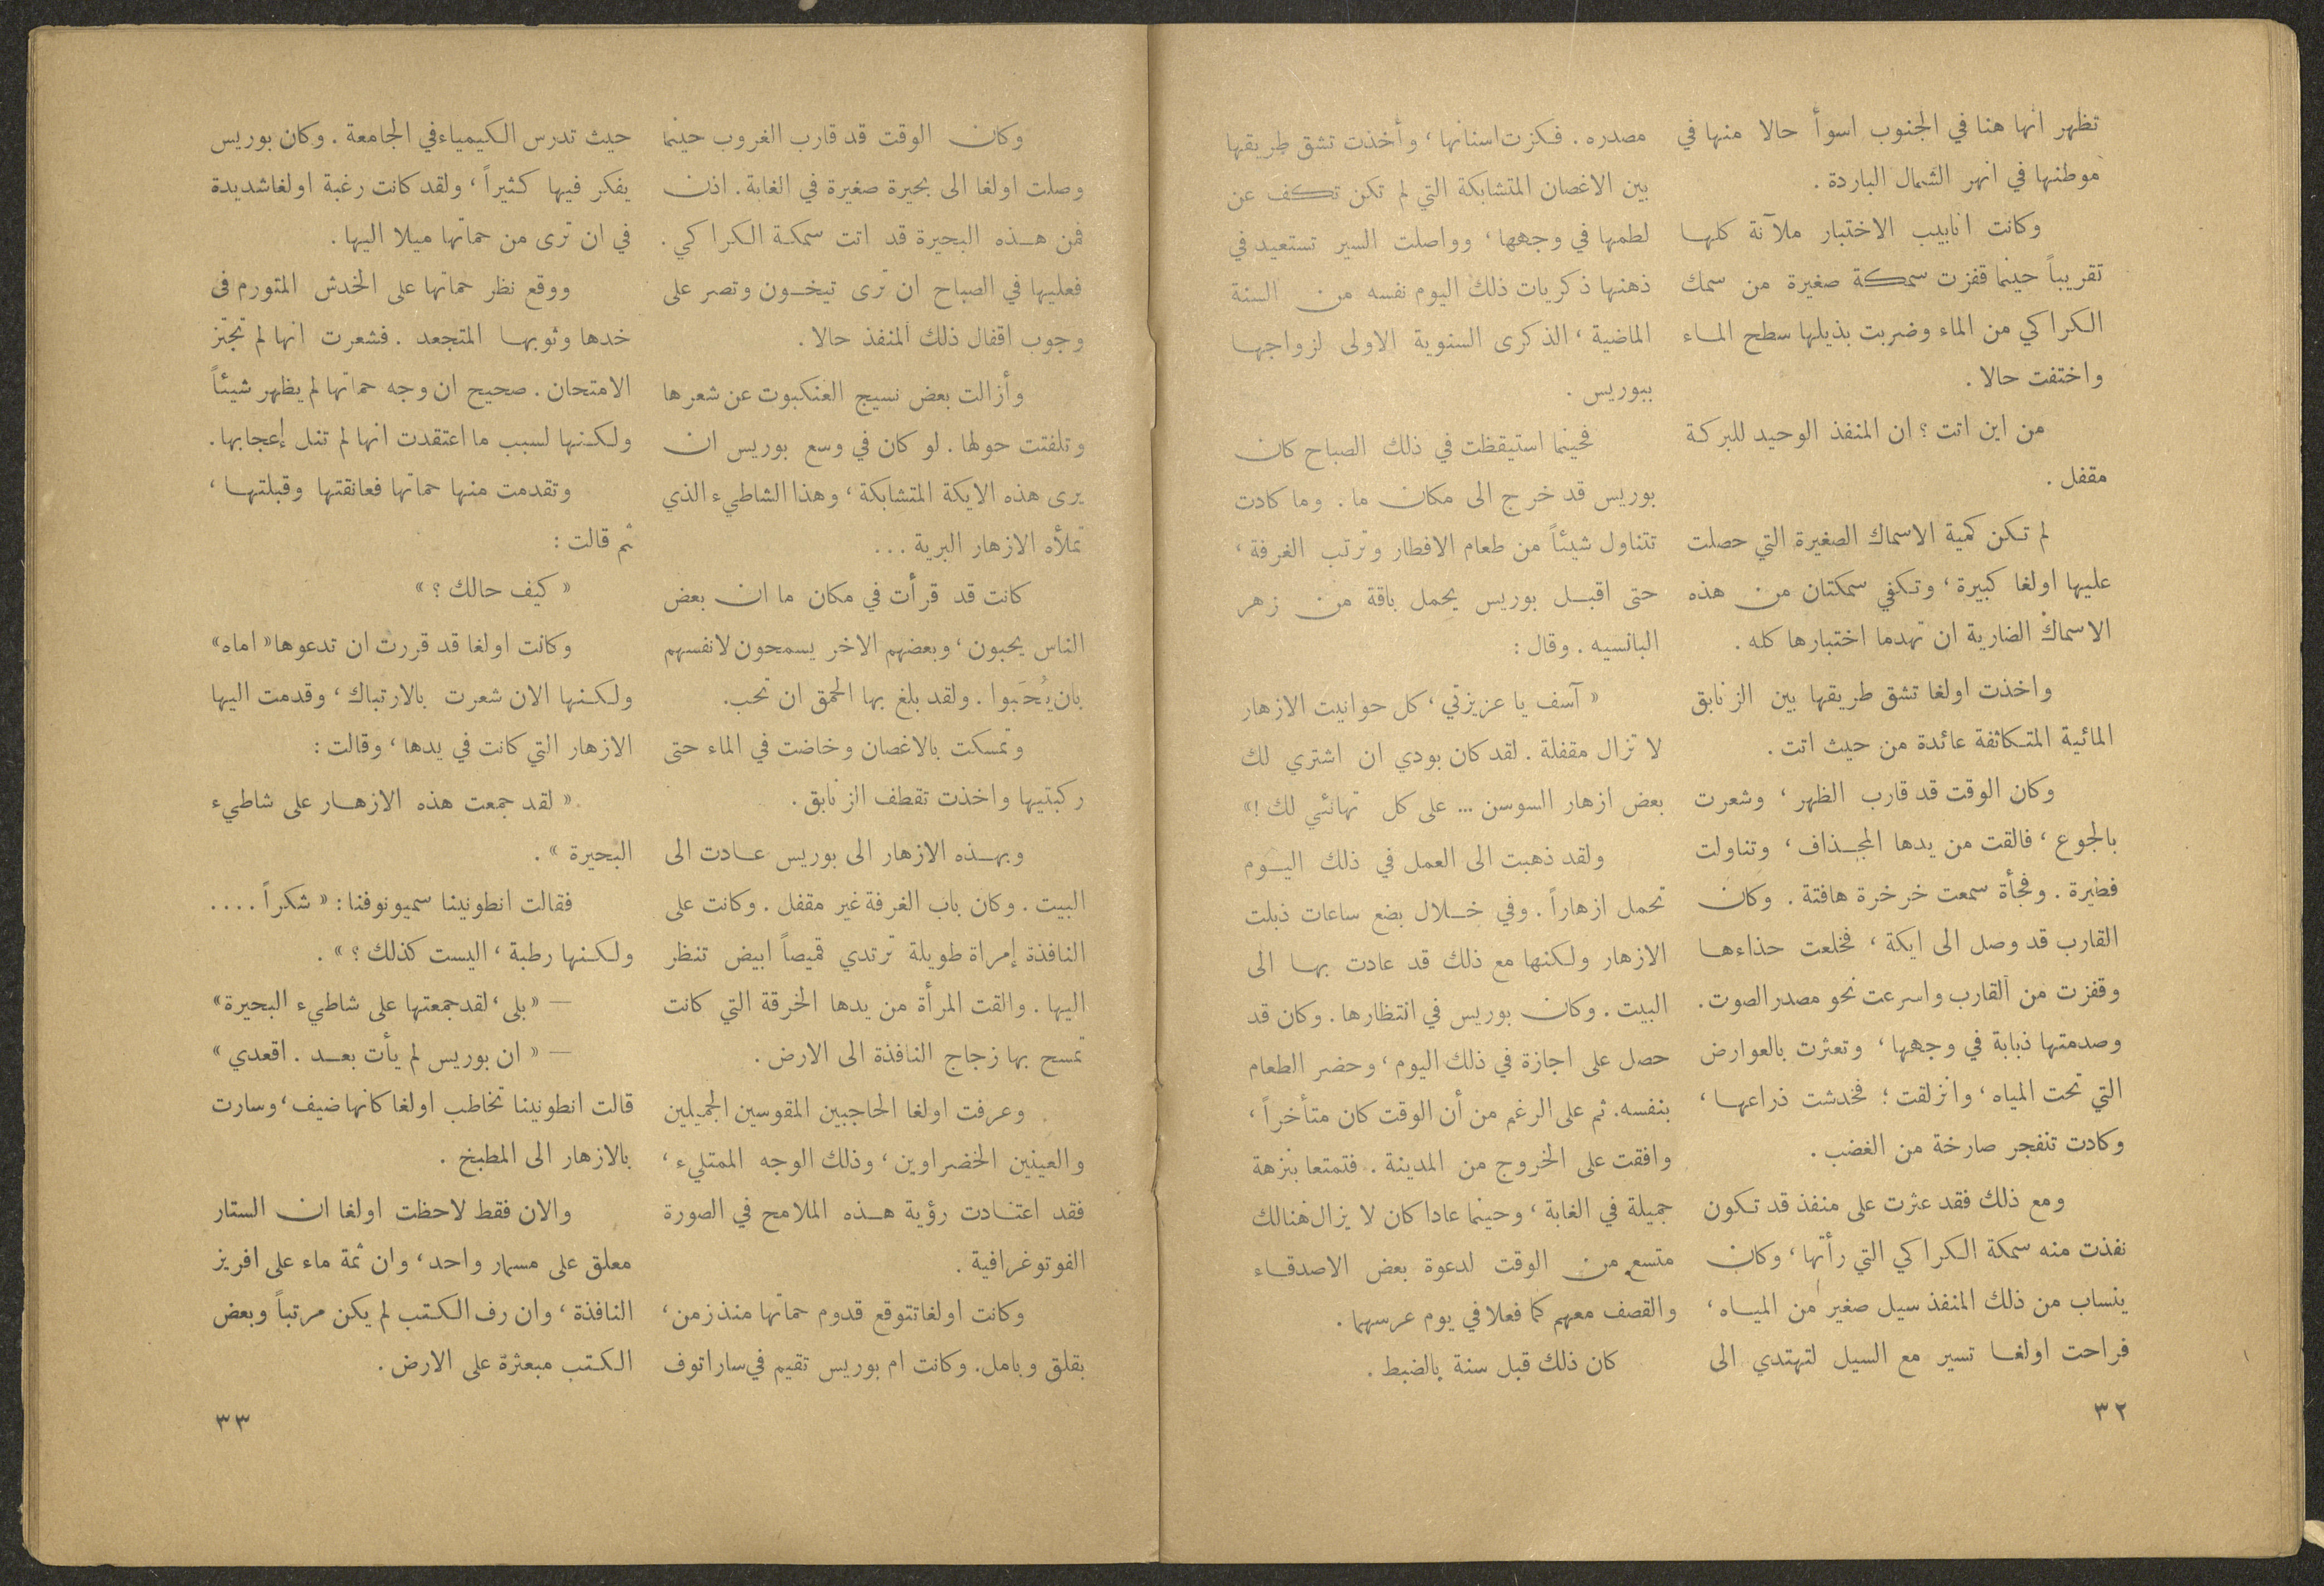 تظهر انها هنا في الجنوب اسوأ حالا منها في
موطنها في انهر الشمال الباردة .
وكانت انابيب الاختبار ملآنة كلها
تقريباً حينما قفزت سمكة صغيرة من سمك
الكراكي من الماء وضربت بذيلها سطح الماء
واختفت حالا .
من اين اتت ؟ ان المنفذ الوحيد للبركة
مقفل .
لم تكن كمية الاسماك الصغيرة التي حصلت
عليها اولغا كبيرة ، وتكفي سمكتان من هذه
الاسماك الضارية ان تهدما اختبارها كله .
واخذت اولغا تشق طريقها بين الزنابق
المائية المتكاثفة عائدة من حيث اتت .
وكان الوقت قد قارب الظهر ، وشعرت
بالجوع ، فالقت من يدها المجذاف ، وتناولت
فطيرة . وفجأة سمعت خرخرة هافتة . وكان
القارب قد وصل الى ايكة ، فخلعت حذاءها
وقفزت من القارب واسرعت نحو مصدر الصوت .
وصدمتها ذبابة في وجهها ، وتعثرت بالعوارض
التي تحت المياه ، وانزلقت ؛ فخدشت ذراعها ،
وكادت تنفجر صارخة من الغضب .
ومع ذلك فقد عثرت على منفذ قد تكون
نفذت منه سمكة الكراكي التي رأتها ، وكان
ينساب من ذلك المنفذ سيل صغير من المياه ،
فراحت اولغا تسير مع السيل لتهتدي الى
مصدره . فكزت اسنانها ، وأخذت تشق طريقها
بين الاغصان المتشابكة التي لم تكن تكف عن
لطمها في وجهها ، وواصلت السير تستعيد في
ذهنها ذكريات ذلك اليوم نفسه من السنة
الماضية ، الذكرى السنوية الاولى لزواجها
ببوريس .
فحينما استيقظت في ذلك الصباح كان
بوريس قد خرج الى مكان ما . وما كادت
تتناول شيئاً من طعام الافطار وترتب الغرفة ،
حتى اقبل بوريس يحمل باقة من زهر
البانسيه . وقال :
« آسف يا عزيزتي ، كل حوانيت الازهار
لا تزال مقفلة . لقد كان بودي ان اشتري لك
بعض ازهار السوسن ... على كل تهانئي لك ! »
ولقد ذهبت الى العمل في ذلك اليوم
تحمل ازهاراً . وفي خلال بضع ساعات ذبلت
الازهار ولكنها مع ذلك قد عادت بها الى
البيت . وكان بوريس في انتظارها . وكان قد
حصل على اجازة في ذلك اليوم ، وحضر الطعام
بنفسه . ثم على الرغم من أن الوقت كان متأخراً ،
وافقت على الخروج من المدينة . فتمتعا بنزهة
جميلة في الغابة ، وحينما عادا كان لا يزال هنالك
متسع من الوقت لدعوة بعض الاصدقاء
والقصف معهم كما فعلا في يوم عرسهما .
كان ذلك قبل سنة بالضبط .
٣٢
وكان الوقت قد قارب الغروب حينما
وصلت اولغا الى بحيرة صغيرة في الغابة . اذن
فمن هذه البحيرة قد اتت سمكة الكراكي .
فعليها في الصباح ان ترى تيخون وتصر على
وجوب اقفال ذلك المنفذ حالا .
وأزالت بعض نسيج العنكبوت عن شعرها
وتلفتت حولها . لو كان في وسع بوريس ان
يرى هذه الايكة المتشابكة ، وهذا الشاطيء الذي
تملأه الازهار البرية ...
كانت قد قرأت في مكان ما ان بعض
الناس يحبون ، وبعضهم الاخر يسمحون لانفسهم
بان يُحَبوا . ولقد بلغ بها الحمق ان تحب .
وتمسكت بالاغصان وخاضت في الماء حتى
ركبتيها واخذت تقطف الزنابق .
وبهذه الازهار الى بوريس عادت الى
البيت . وكان باب الغرفة غير مقفل . وكانت على
النافذة إمراة طويلة ترتدي قميصاً ابيض تنظر
اليها . والقت المرأة من يدها الخرقة التي كانت
تمسح بها زجاج النافذة الى الارض .
وعرفت اولغا الحاجبين المقوسين الجميلين
والعينين الخضراوين ، وذلك الوجه الممتليء ،
فقد اعتادت رؤية هذه الملامح في الصورة
الفوتوغرافية .
وكانت اولغا تتوقع قدوم حماتها منذ زمن ،
بقلق وبامل . وكانت ام بوريس تقيم في ساراتوف
حيث تدرس الكيمياء في الجامعة . وكان بوريس
يفكر فيها كثيراً ، ولقد كانت رغبة اولغا شديدة
في ان ترى من حماتها ميلا اليها .
ووقع نظر حماتها على الخدش المتورم فى
خدها وثوبها المتجعد . فشعرت انها لم تجتز
الامتحان . صحيح ان وجه حماتها لم يظهر شيئاً
ولكنها لسبب ما اعتقدت انها لم تنل إعجابها .
وتقدمت منها حماتها فعانقتها وقبلتها ،
ثم قالت :
« كيف حالك ؟ »
وكانت اولغا قد قررت ان تدعوها « اماه »
ولكنها الان شعرت بالارتباك ، وقدمت اليها
الازهار التي كانت في يدها ، وقالت :
« لقد جمعت هذه الازهار على شاطيء
البحيرة » .
فقالت انطونينا سميونوفنا : « شكراً ....
ولكنها رطبة ، اليست كذلك ؟ » .
— « بلى ، لقد جمعتها على شاطيء البحيرة »
— « ان بوريس لم يأت بعد . اقعدي »
قالت انطونينا تخاطب اولغا كانها ضيف ، وسارت
بالازهار الى المطبخ .
والان فقط لاحظت اولغا ان الستار
معلق على مسمار واحد ، وان ثمة ماء على افريز
النافذة ، وان رف الكتب لم يكن مرتباً وبعض
الكتب مبعثرة على الارض .
٣٣